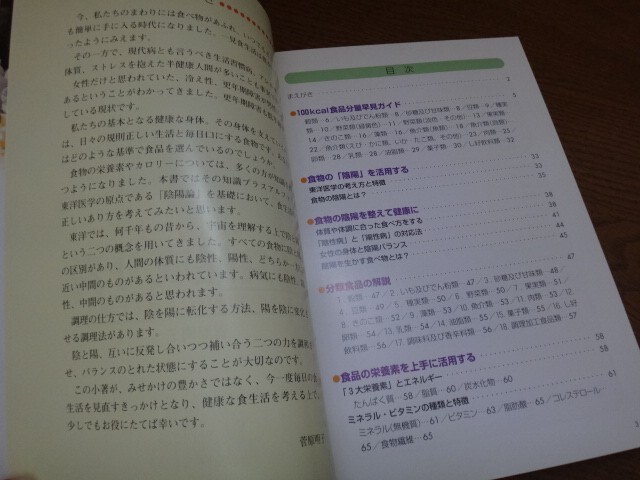 今、私たちのまわりには食べ物があふれ、いつでも
も簡単に手に入る時代になりました。一見食生活は
ったようにみえます。
その一方で、現代病とも言うべき生活習慣病、
体質、ストレスを抱えた半健康人間が多いことも事
女性だけと思われていた、冷え性、更年期障害が
あるということがわかってきました。更年期障害
している現状です。
私たちの基本となる健康な身体。その身体を支えてい
は、日々の規則正しい生活と毎日口にする食物です。あ
はどのような基準で食品を選んでいるのでしょうか。
食物の栄養素やカロリーについては、多くの方が知
つようになりました。本書ではその知識プラスアルフ
東洋医学の原点である「陰陽論」を基礎において、食
正しいあり方を考えてみたいと思います。
東洋では、何千年もの昔から、宇宙を理解する上で陰
という二つの概念を用いてきました。すべての食物に陰
の区別があり、人間の体質にも陰性、陽性、どちらか
近い中間のものがあるといわれています。病気にも陰性、
性、中間のものがあると思われます。
調理の仕方では、陰を陽に転化する方法、陽を陰に変え
せる調理法があります。
陰と陽、互いに反発し合いつつ補い合う二つの力を調
せ、バランスのとれた状態にすることが大切なのです。
この小著が、みせかけの豊かさではなく、今一度毎日の
生活を見直すきっかけとなり、健康な食生活を考える上で、
少しでもお役にたてば幸いです。
菅原明子
目 次
まえがき 3
●100kcal食品分量早見ガイド
穀類…6／いも及びでん粉類…8／砂糖及び甘味類…8／豆類…9／種実
類…10／野菜類(緑黄色)…11／野菜類(淡色・その他)…13／果実類…
14／きのこ類…16／藻類…16／魚介類(魚類)…18／魚介類(貝類)…
22／魚介類(えび・かに類、いか・たこ類、その他)…23／肉類…25／
卵類…28／乳類…28／油脂類…29／菓子類…30／し好飲料類…32
●食物の「陰陽」を活用する 33
東洋医学の考え方と特徴 33
食物の陰陽とは? 35
●食物の陰陽を整えて健康に 38
体質や体調に合った食べ方をする 38
「陰性病」と「陽性病」の対応法 41
女性の身体と陰陽バランス 44
陰陽を生かす食べ物とは? 45
●分類食品の解説 47
1．穀類…47／2．いも及びでん粉類…47／3．砂糖及び甘味類…48／
4．豆類…49／5．種実類…50／6．野菜類…50／7．果実類…51／
8．きのこ類…52／9．藻類…52／10．魚介類…53／11．肉類…53／12．
卵類…54／13．乳類…54／14．油脂類…55／15．菓子類…56／16．し好
飲料類…56／17．調味料及び香辛料類…56／18．調理加工食品類…57
●食品の栄養素を上手に活用する 58
「3大栄養素」とエネルギー 58
たんぱく質…58／脂質…60／炭水化物…60
ミネラル・ビタミンの種類と特徴 61
ミネラル(無機質)…61／ビタミン…63／脂肪酸…65／コレステロール…
65／食物繊維…65
3